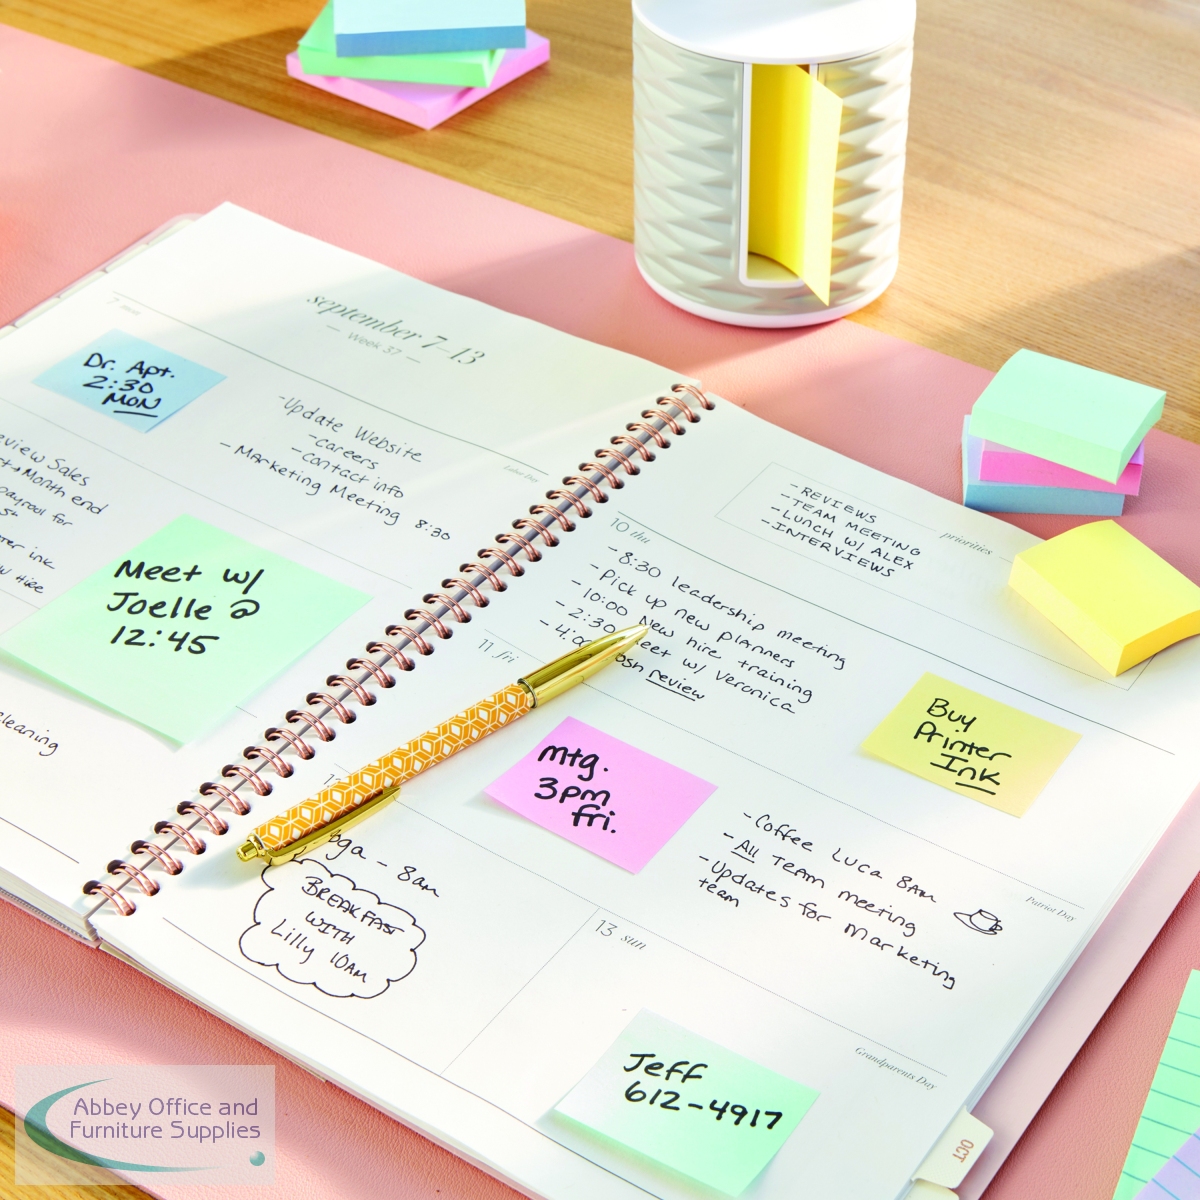 september 7–13
— Week 37 —
7 mon
Dr. Apt.
2:30
MON
-Update Website
-careers
-contact info
- Marketing Meeting 8:30
Labor Day
Review Sales
Month end
payroll for
ink
Hire
Meet w/
Joelle @
12:45
cleaning
priorities
- REVIEWS
- TEAM MEETING
- LUNCH w/ ALEX
- INTERVIEWS
10 thu
- 8:30 leadership meeting
- Pick up new planners
- 10:00 New hire training
- 2:30 Meet w/ Veronica
review
11 fri
Buy
Printer
Ink
mtg.
3pm
fri.
- Coffee Luca 8AM
- All Team meeting
- Updates for Marketing
team
Patriot Day
yoga - 8am
BREAKFAST
WITH
Lilly 10AM
13 sun
Grandparents Day
Jeff
612-4917
OCT
Abbey Office and
Furniture Supplies